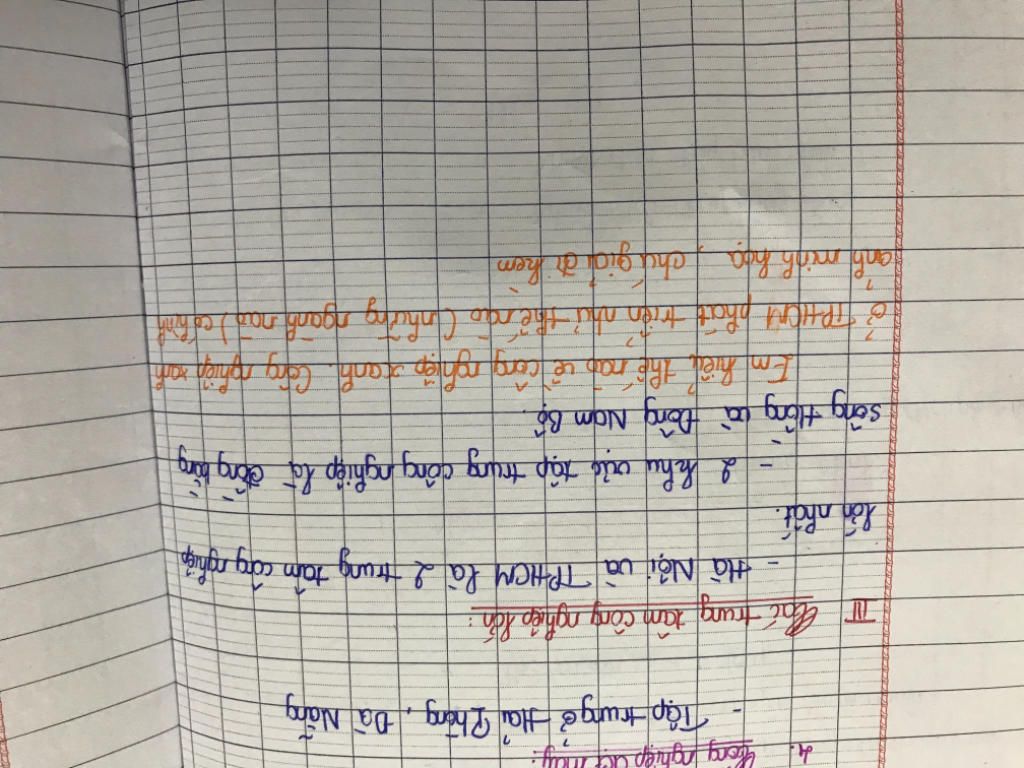 4. Công nghiệp dệt may:
- Tập trung ở Hải Phòng, Đà Nẵng
III Các trung tâm công nghiệp lớn:
- Hà Nội và TPHCM là 2 trung tâm công nghiệp
lớn nhất.
- 2 khu vực tập trung công nghiệp là đồng bằng
sông Hồng và Đông Nam Bộ.
Em hiểu thế nào về công nghiệp xanh. Công nghiệp xanh
ở TPHCM phát triển như thế nào (những ngành nào) có hình
ảnh minh họa, chú giải đi kèm